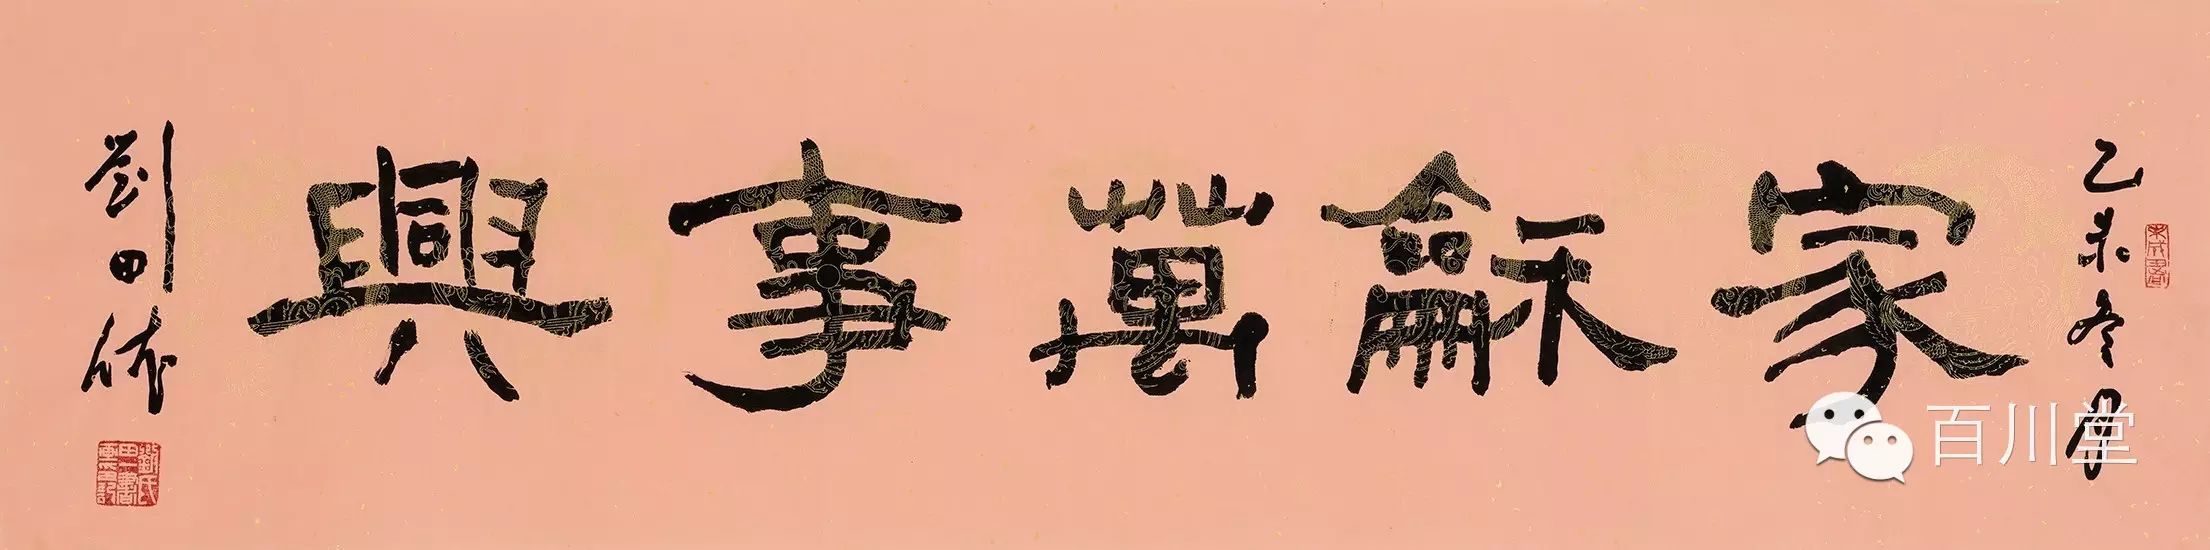 乙未冬月
家龢萬事興
劉田依
百川堂